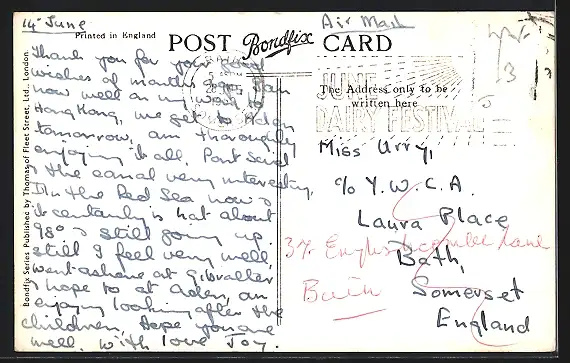 14th June
Air Mail
Printed in England
POST Bondfix CARD
Thank you for your good
wishes of months ago, I am
now well on my way to
Hong Kong, we get to Aden
tomorrow, am thoroughly
enjoying it all. Port Said
& the canal very interesting.
In the Red Sea now &
it certainly is hot about
98° & still going up.
still I feel very well,
went ashore at Gibraltar
& hope to at Aden, am
enjoying looking after the
children, Hope you are
well. With love Joy.
Bondfix Series Published by Thomas of Fleet Street, Ltd., London.
JUNE
DAIRY FESTIVAL
The Address only to be
written here
Miss Urry,
c/o Y.W.C.A.
Laura Place
Bath,
Somerset
England
37 Englishcombe Lane
Bath